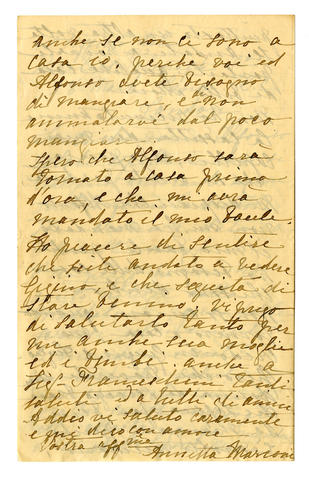 anche se non ci sono a
casa io, perche voi ed
Alfonso avete bisogno
di mangiare, e non
ammalarvi dal poco
mangiare.
Spero che Alfonso sarà
tornato a casa prima
d'ora, e che mi avrà
mandato il mio
Ho piacere di sentire
che siete andato a vedere
Gigino, e che seguita di
stare benino vi prego
di salutarlo tanto per
me anche sua moglie
ed i bimbi, anche a
Sig- Franceschini tanti
saluti e a tutti di amici
Addio vi saluto caramente
e mi dico con amore
vostra affma
Annetta Marconi